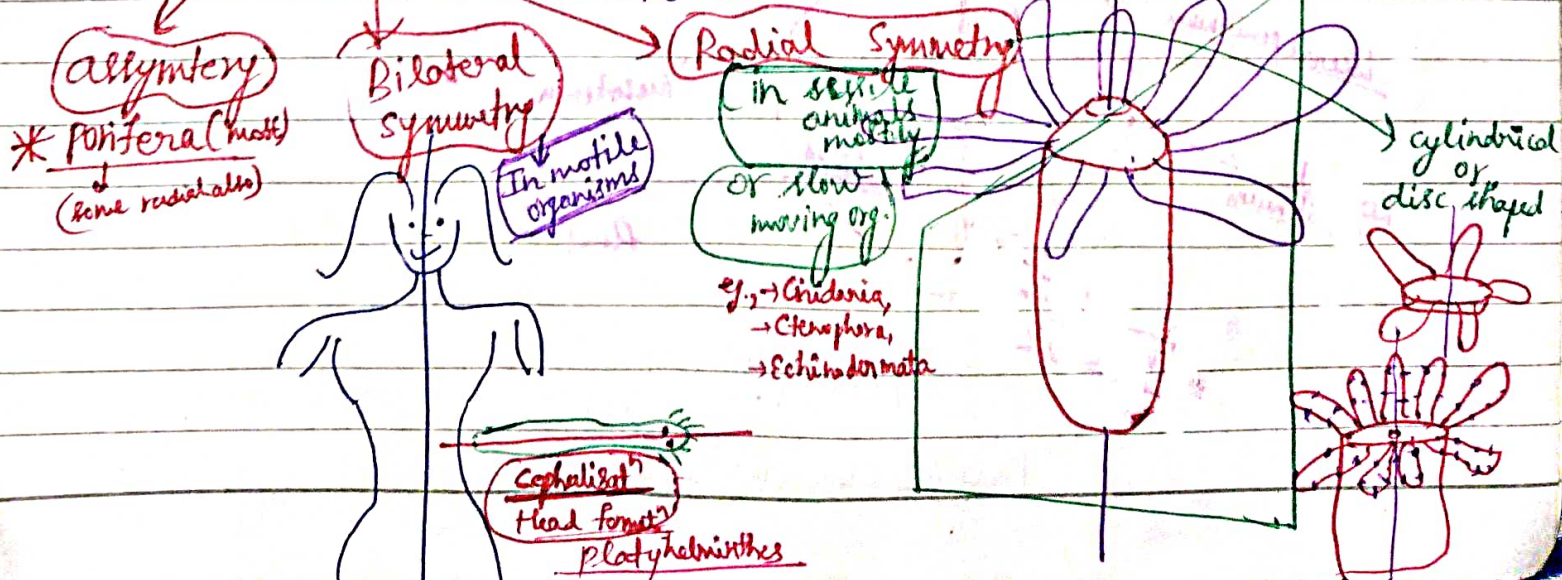 assymtery
* Porifera (most)
(some radial also)
Bilateral
symmetry
In motile
organisms
Radial Symmetry
in sessile
animals
mostly
or slow
moving org.
eg., → Cnidaria,
→ Ctenophora,
→ Echinodermata
cylindrical
or
disc shaped
Cephalisatⁿ
Head formatⁿ
Platyhelminthes